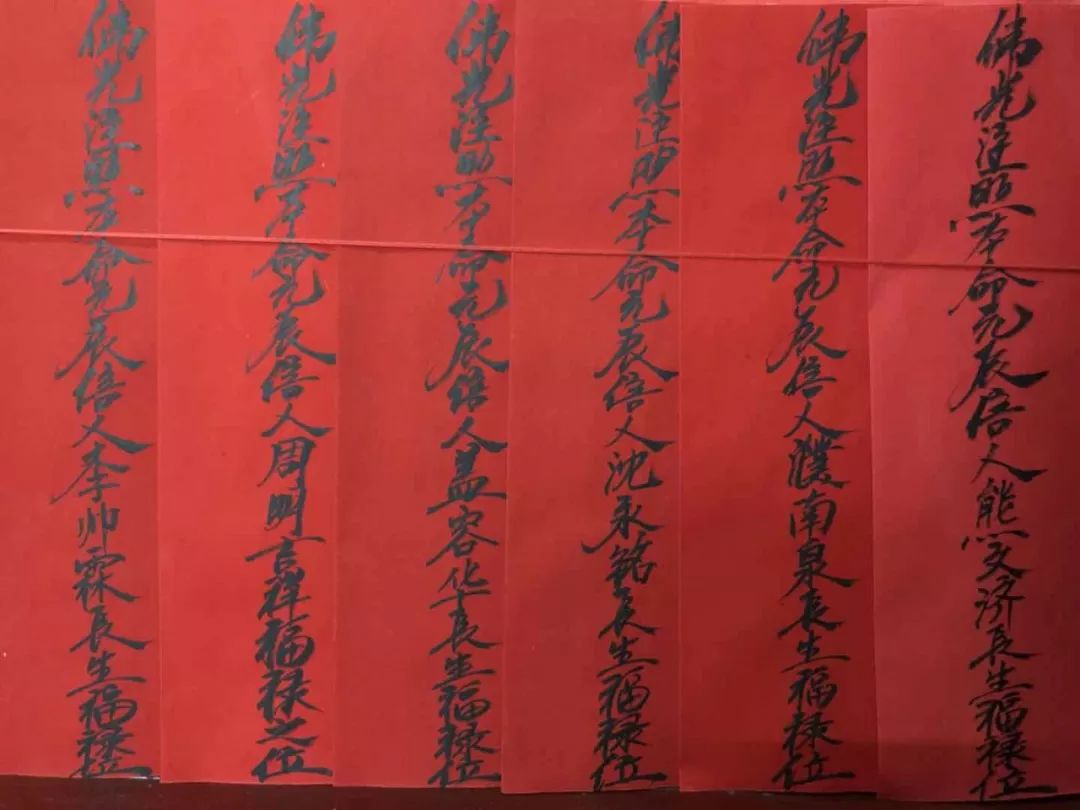 佛光注照本命元辰信人熊文济長生福禄位
佛光注照本命元辰信人濮南泉長生福禄位
佛光注照本命元辰信人沈永铭長生福禄位
佛光注照本命元辰信人孟容华長生福禄位
佛光注照本命元辰信人周明言祥福禄之位
佛光注照本命元辰信人李帅霖長生福禄位